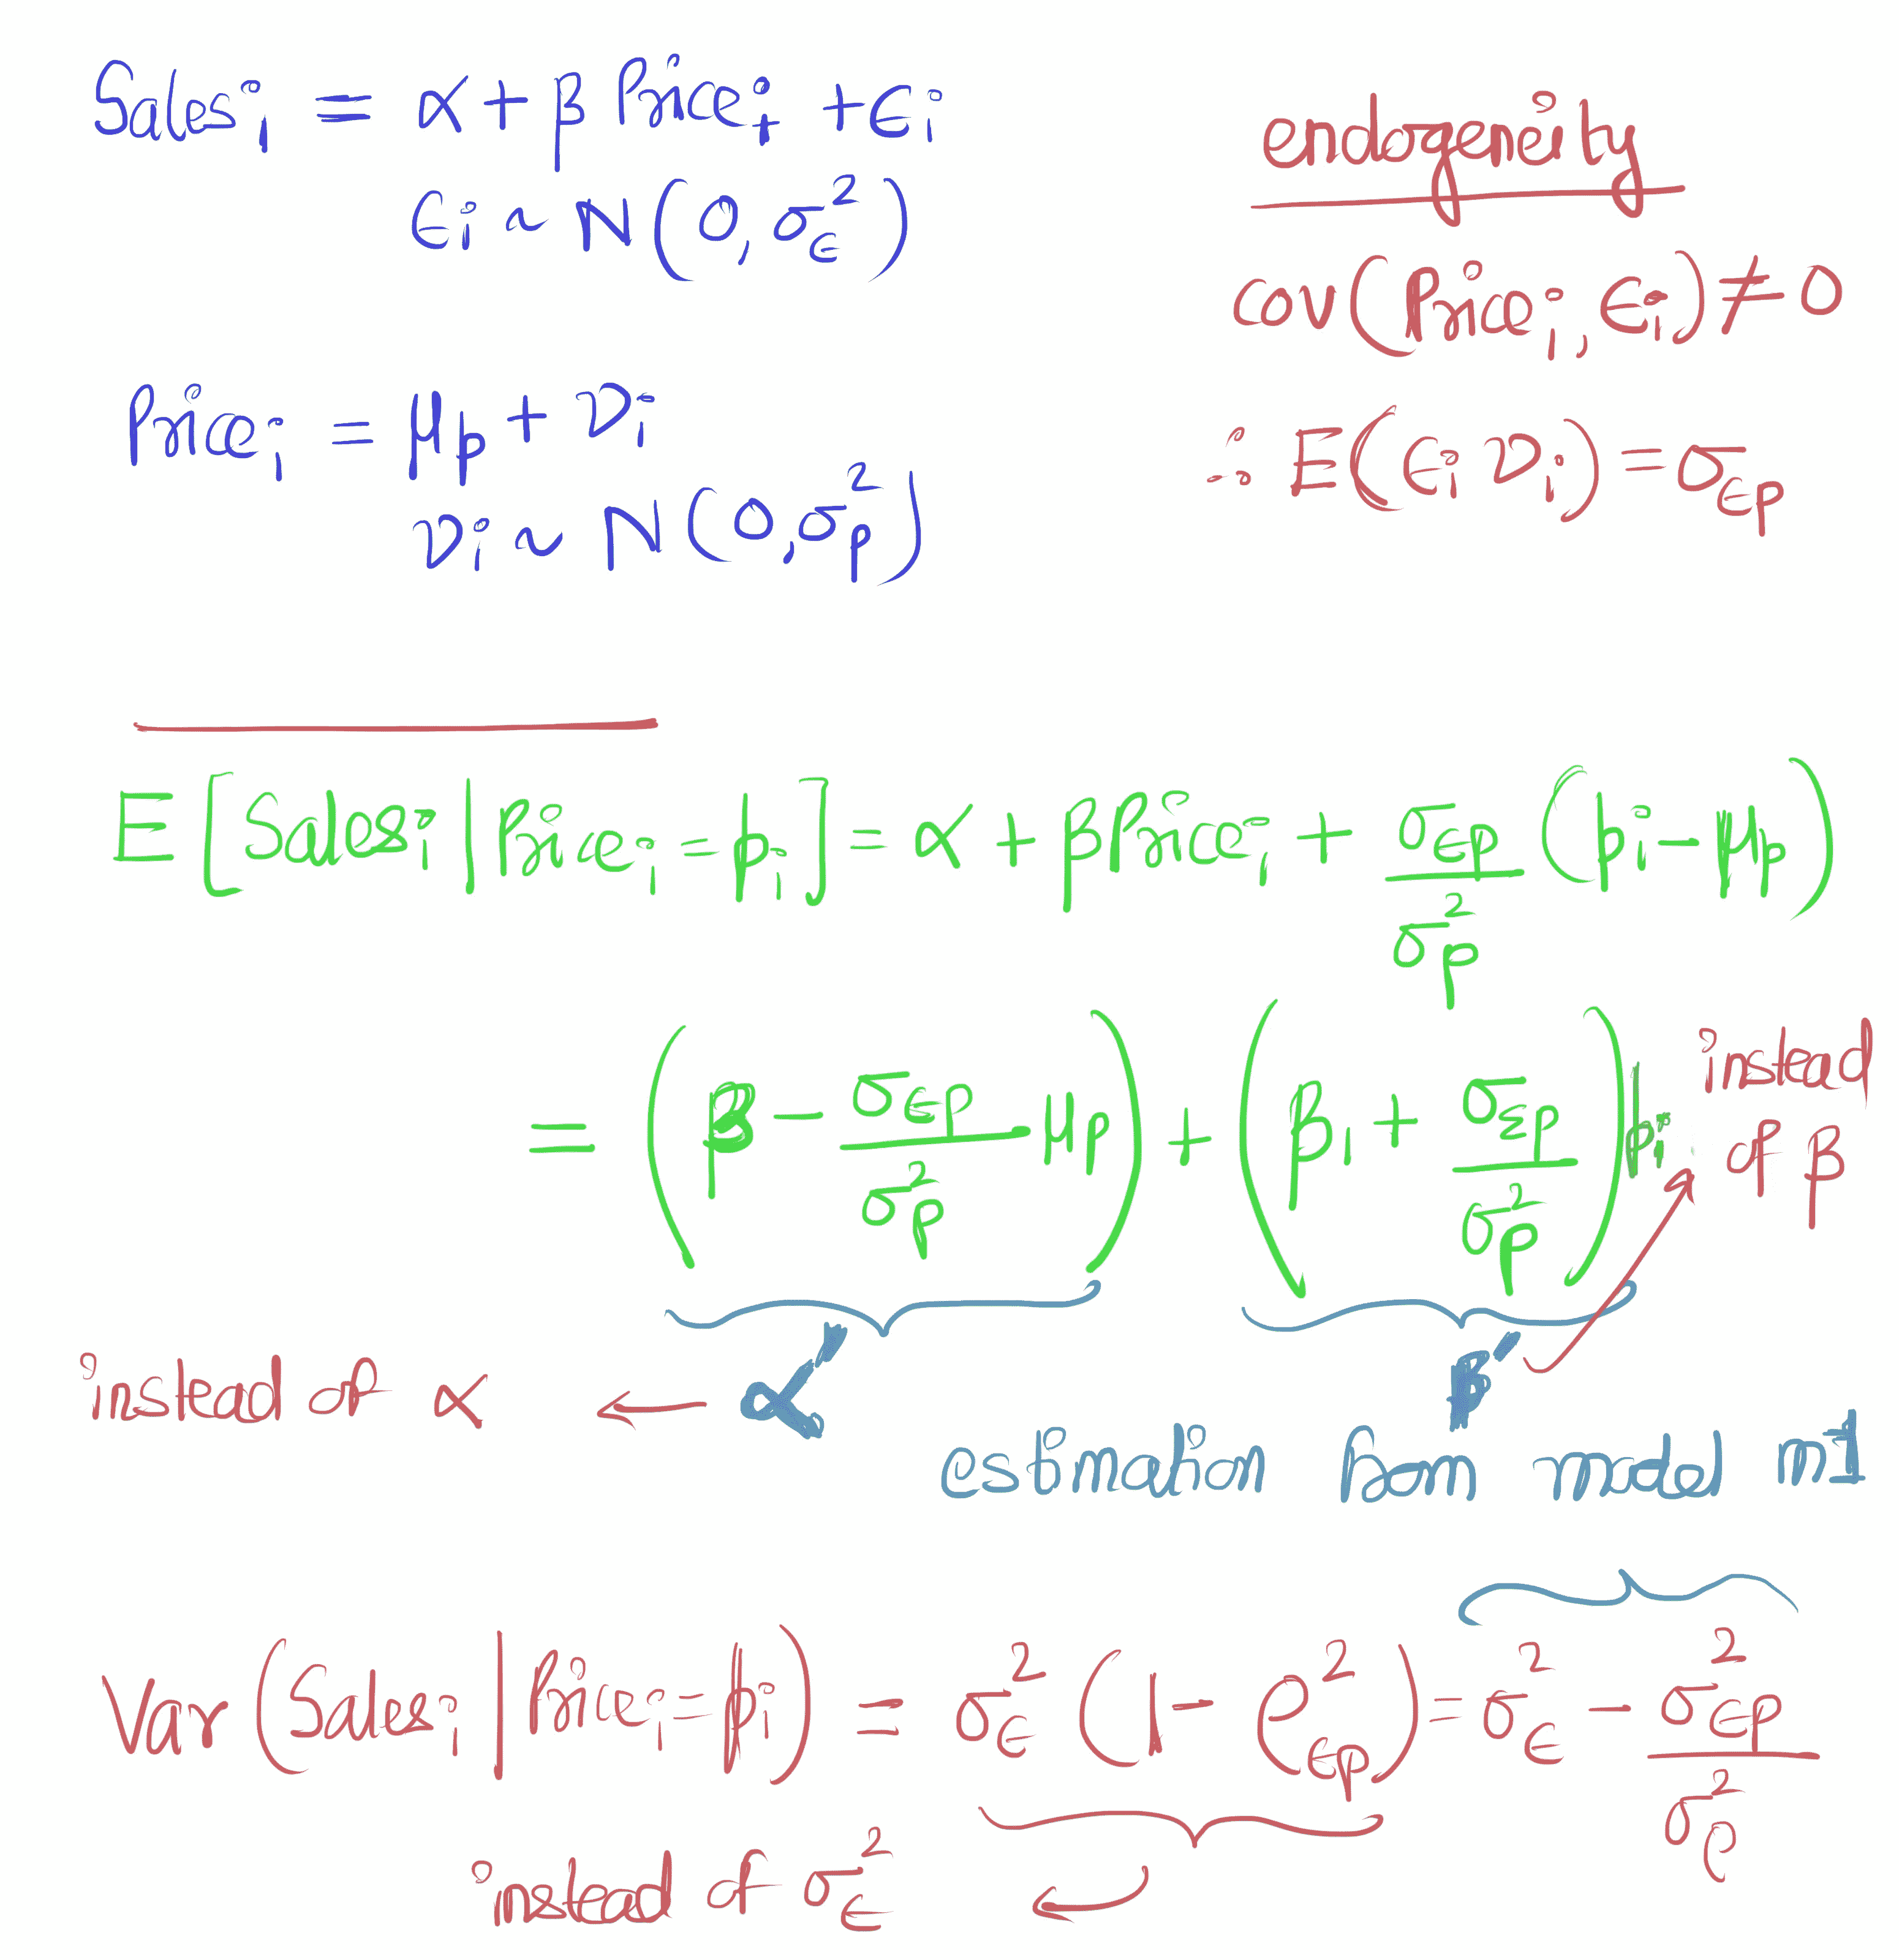 Sales_i = α + β Price_i + ϵ_i
ϵ_i ~ N(0, σ_ϵ^2)
Price_i = μ_p + ν_i
ν_i ~ N(0, σ_p^2)
endogeneity
cov(Price_i, ϵ_i) ≠ 0
∴ E(ϵ_i ν_i) = σ_ϵp
E[Sales_i | Price_i = p_i] = α + β Price_i + σ_ϵp / σ_p^2 (p_i − μ_p)
= (β − σ_ϵp / σ_p^2 μ_p) + (β_1 + σ_εp / σ_p^2) p_i
instead
of β
instead of α ← α′
β′
estimation from model m1
Var(Sales_i | Price_i = p_i) = σ_ϵ^2 (1 − ρ_ϵp^2) = σ_ϵ^2 − σ_ϵp^2 / σ_p^2
instead of σ_ϵ^2